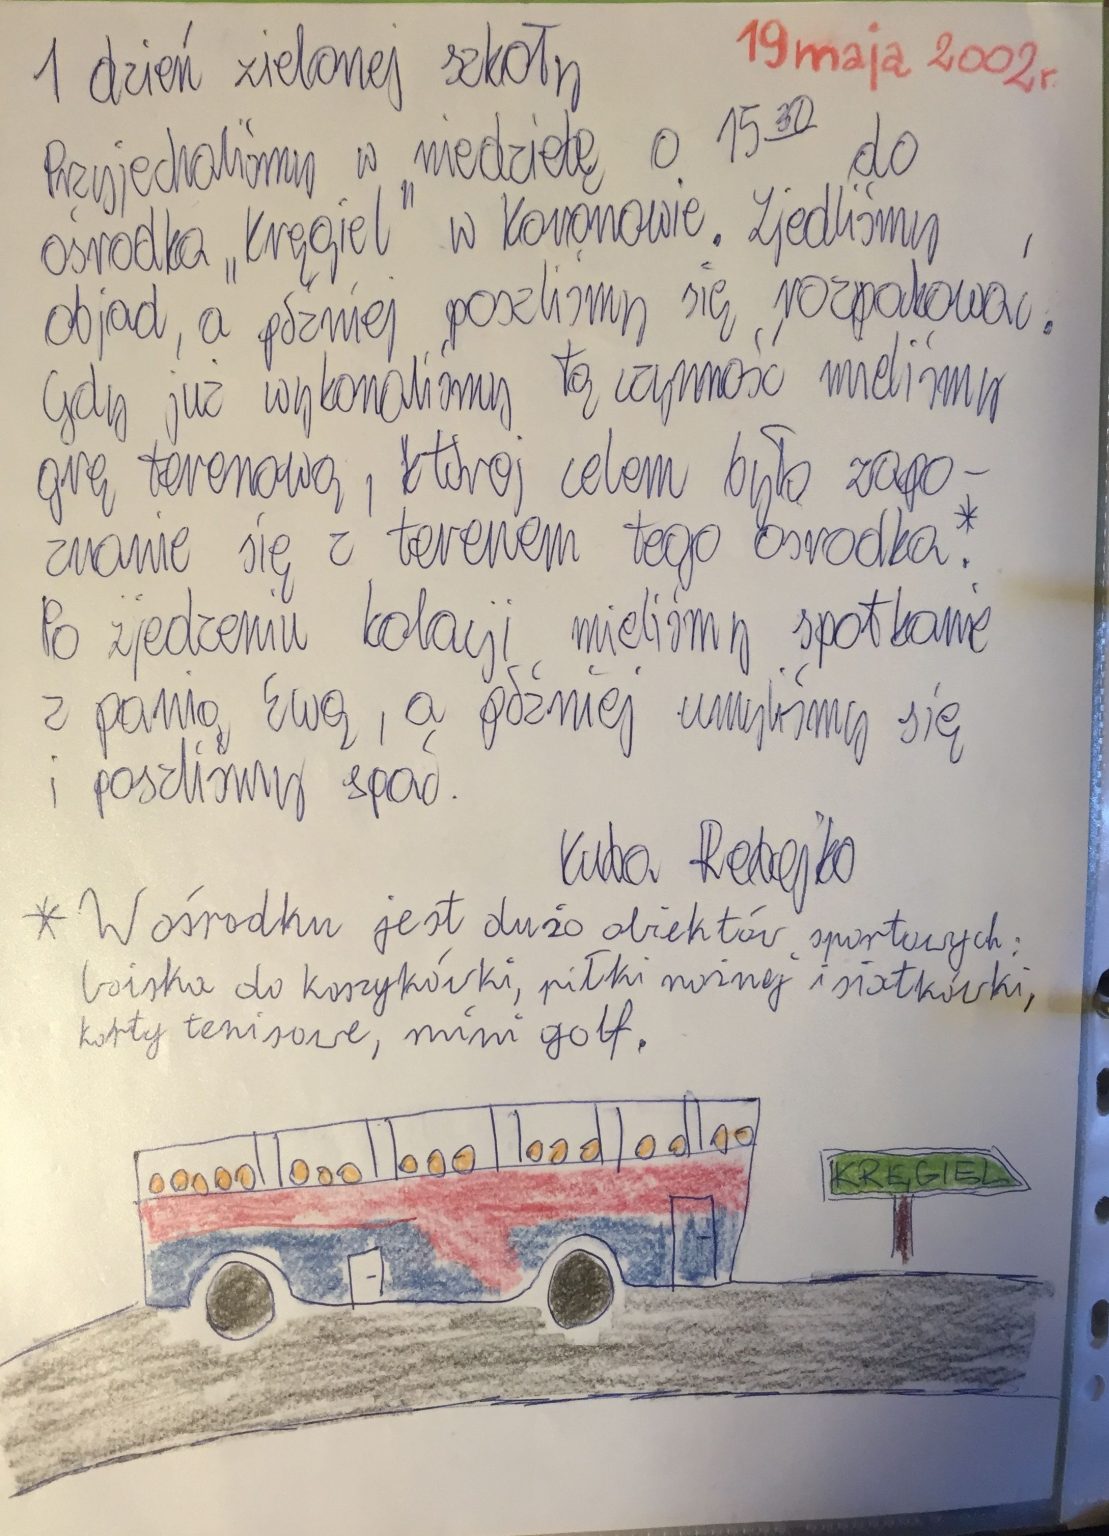 1 dzień zielonej szkoły
19 maja 2002r.
Przyjechaliśmy w niedzielę o 15 30 do
ośrodka „Kręgiel" w Koronowie. Zjedliśmy
objad, a póżniej poszliśmy się rozpakować.
Gdy już wykonaliśmy tą czynność mieliśmy
grę terenową, której celem było zapo-
znanie się z terenem tego ośrodka.*
Po zjedzeniu kolacji mieliśmy spotkanie
z panią Ewą, a póżniej umyliśmy się
i poszliśmy spać.
Kuba
* W ośrodku jest dużo obiektów sportowych:
boiska do koszykówki, piłki nożnej i siatkówki,
korty tenisowe, mini golf.
KRĘGIEL